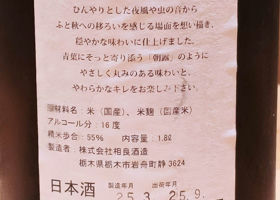 ひんやりとした夜風や虫の音から
ふと秋への移ろいを感じる場面を想い描き、
穏やかな味わいに仕上げました。
青葉にそっと寄り添う「朝露」のように
やさしく丸みのある味わいと、
やわらかなキレをお楽しみ下さい。
原材料名：米（国産）、米麹（国産米）
アルコール分：16度
精米歩合：55％　内容量：1.8ℓ
製造者：株式会社相良酒造
栃木県栃木市岩舟町静3624
日本酒　製造年月　出荷年月
25.3　25.9.